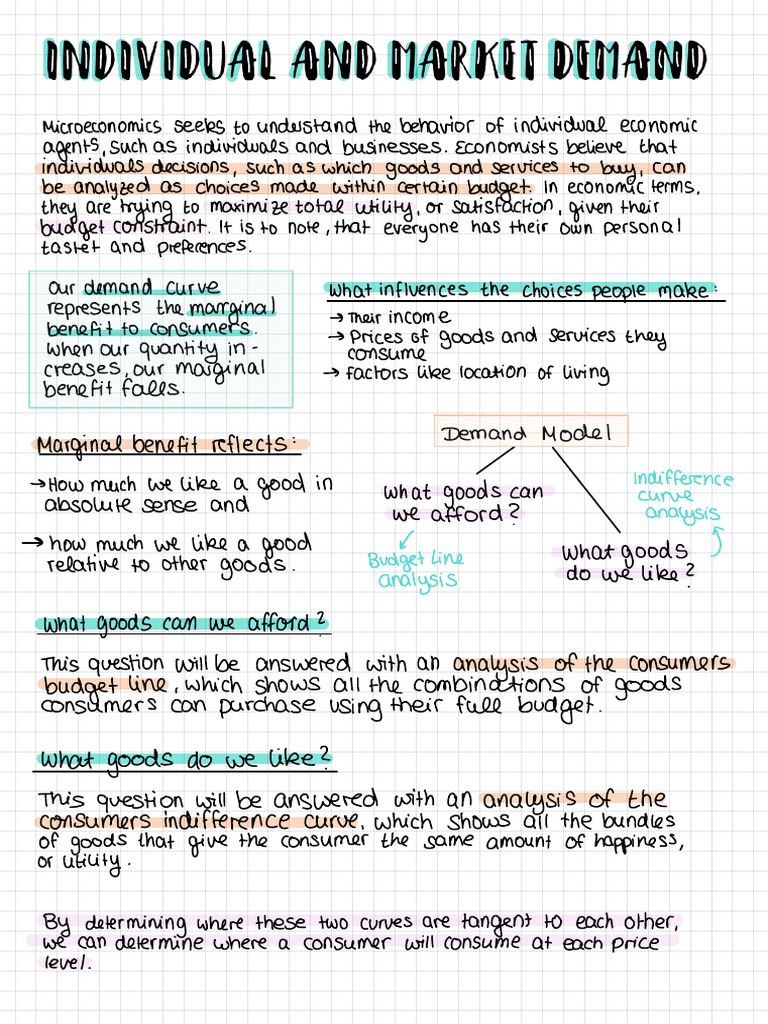 INDIVIDUAL AND MARKET DEMAND
Microeconomics seeks to understand the behavior of individual economic
agents, such as individuals and businesses. Economists believe that
individuals decisions, such as which goods and services to buy, can
be analyzed as choices made within certain budget. In economic terms,
they are trying to maximize total utility, or satisfaction, given their
budget constraint. It is to note, that everyone has their own personal
tastet and preferences.
Our demand curve
represents the marginal
benefit to consumers.
When our quantity in-
creases, our marginal
benefit falls.
What influences the choices people make:
→ Their income
→ Prices of goods and services they
consume
→ factors like location of living
Marginal benefit reflects:
→ How much we like a good in
absolute sense and
→ how much we like a good
relative to other goods.
Demand Model
What goods can
we afford?
Budget Line
analysis
Indifference
curve
analysis
What goods
do we like?
What goods can we afford?
This question will be answered with an analysis of the consumers
budget line, which shows all the combinations of goods
consumers can purchase using their full budget.
What goods do we like?
This question will be answered with an analysis of the
consumers indifference curve, which shows all the bundles
of goods that give the consumer the same amount of happiness,
or utility.
By determining where these two curves are tangent to each other,
we can determine where a consumer will consume at each price
level.